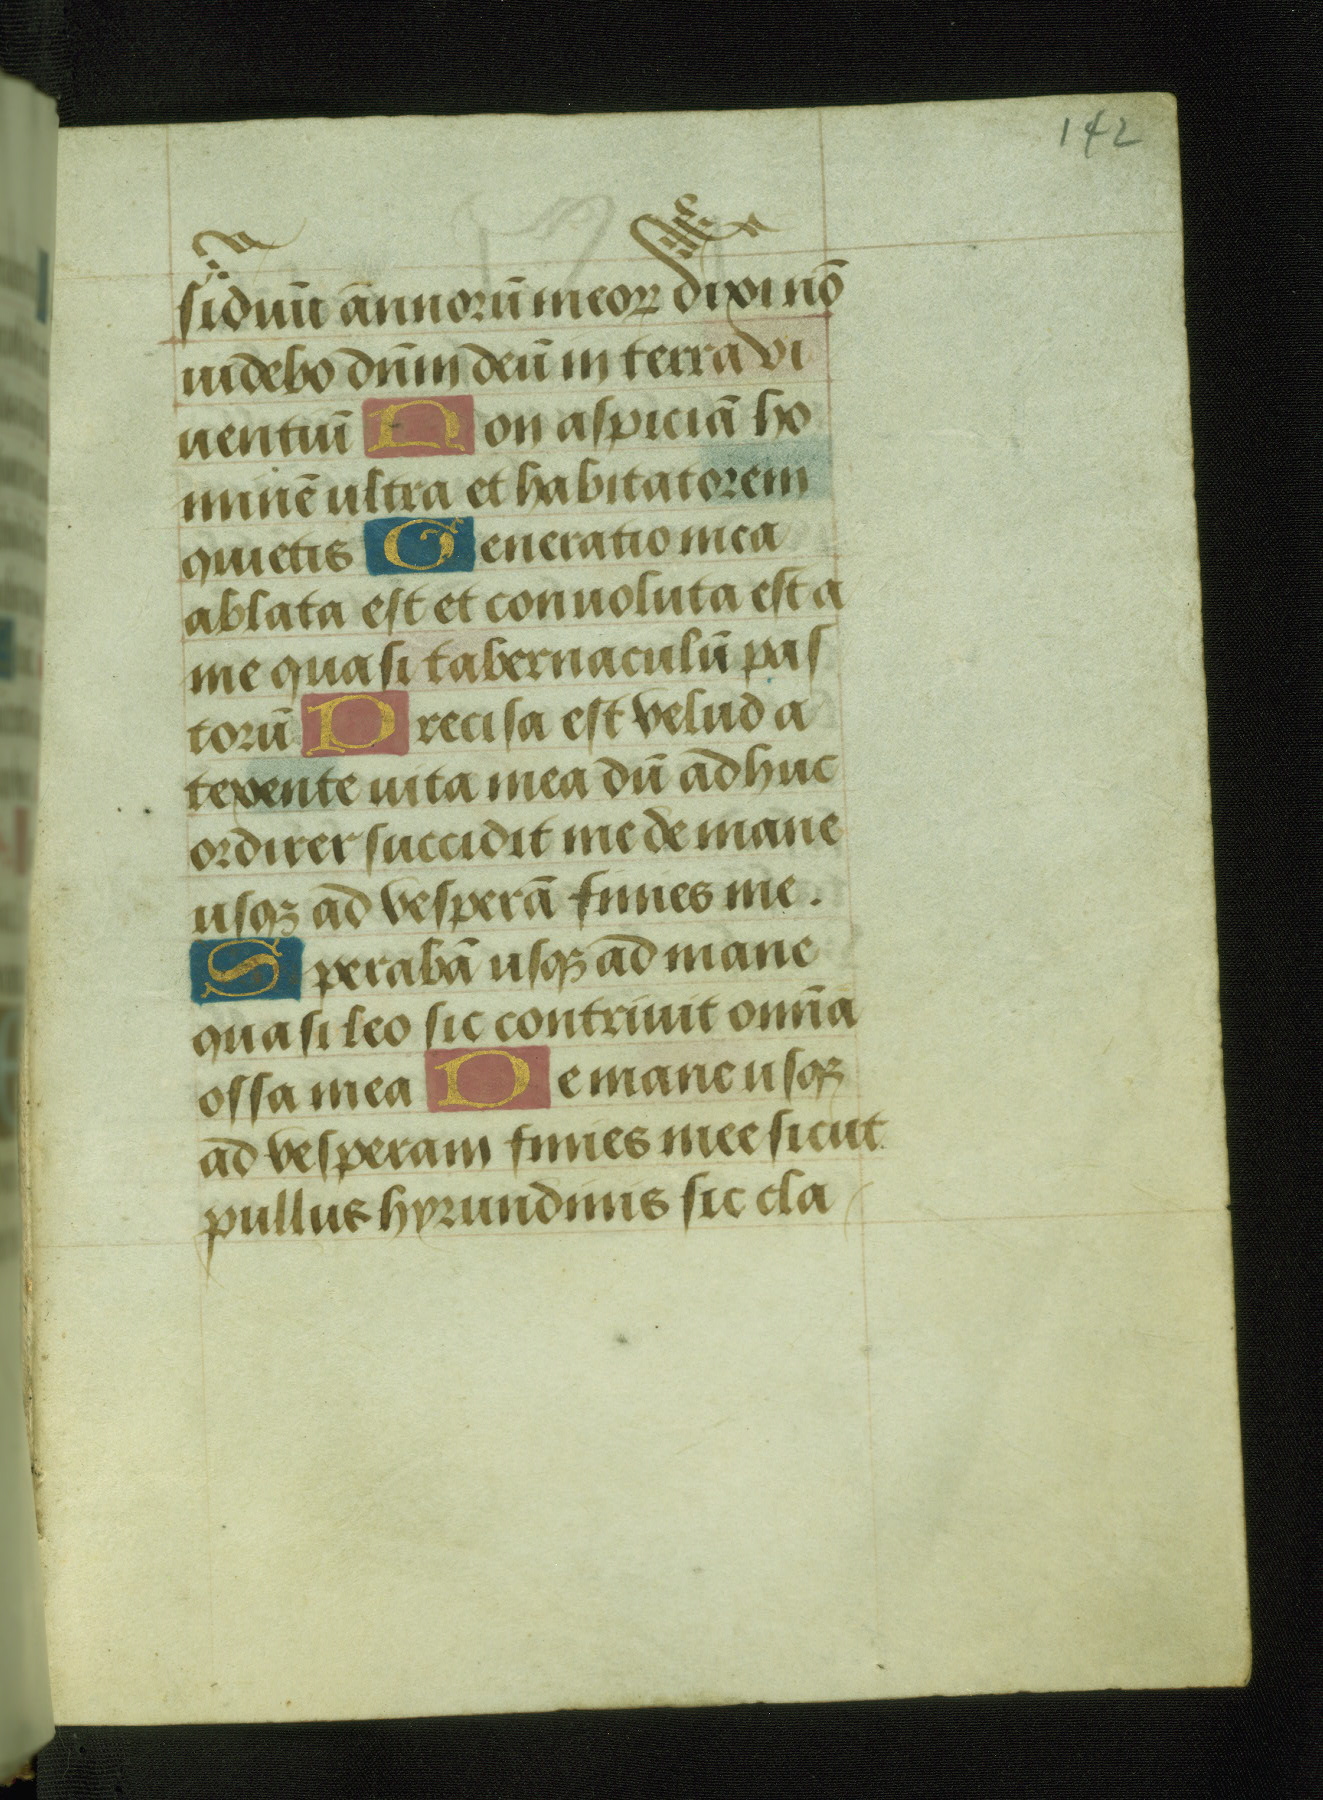 142
siduū ānnorū meoꝝ dixi nō
uidebo dn̄m deū in terra vi
uentiū Non aspiciā ho
minē ultra et habitatorem
quietis Generatio mea
ablata est et conuoluta est a
me quasi tabernaculū pas
torū Precisa est velud a
texente uita mea dū adhuc
ordirer succidit me de mane
usqꝫ ad vesperā finies me.
Sperabā usqꝫ ad mane
quasi leo sic contriuit omīa
ossa mea De mane usqꝫ
ad vesperam finies mee sicut
pullus hyrundinis sic cla